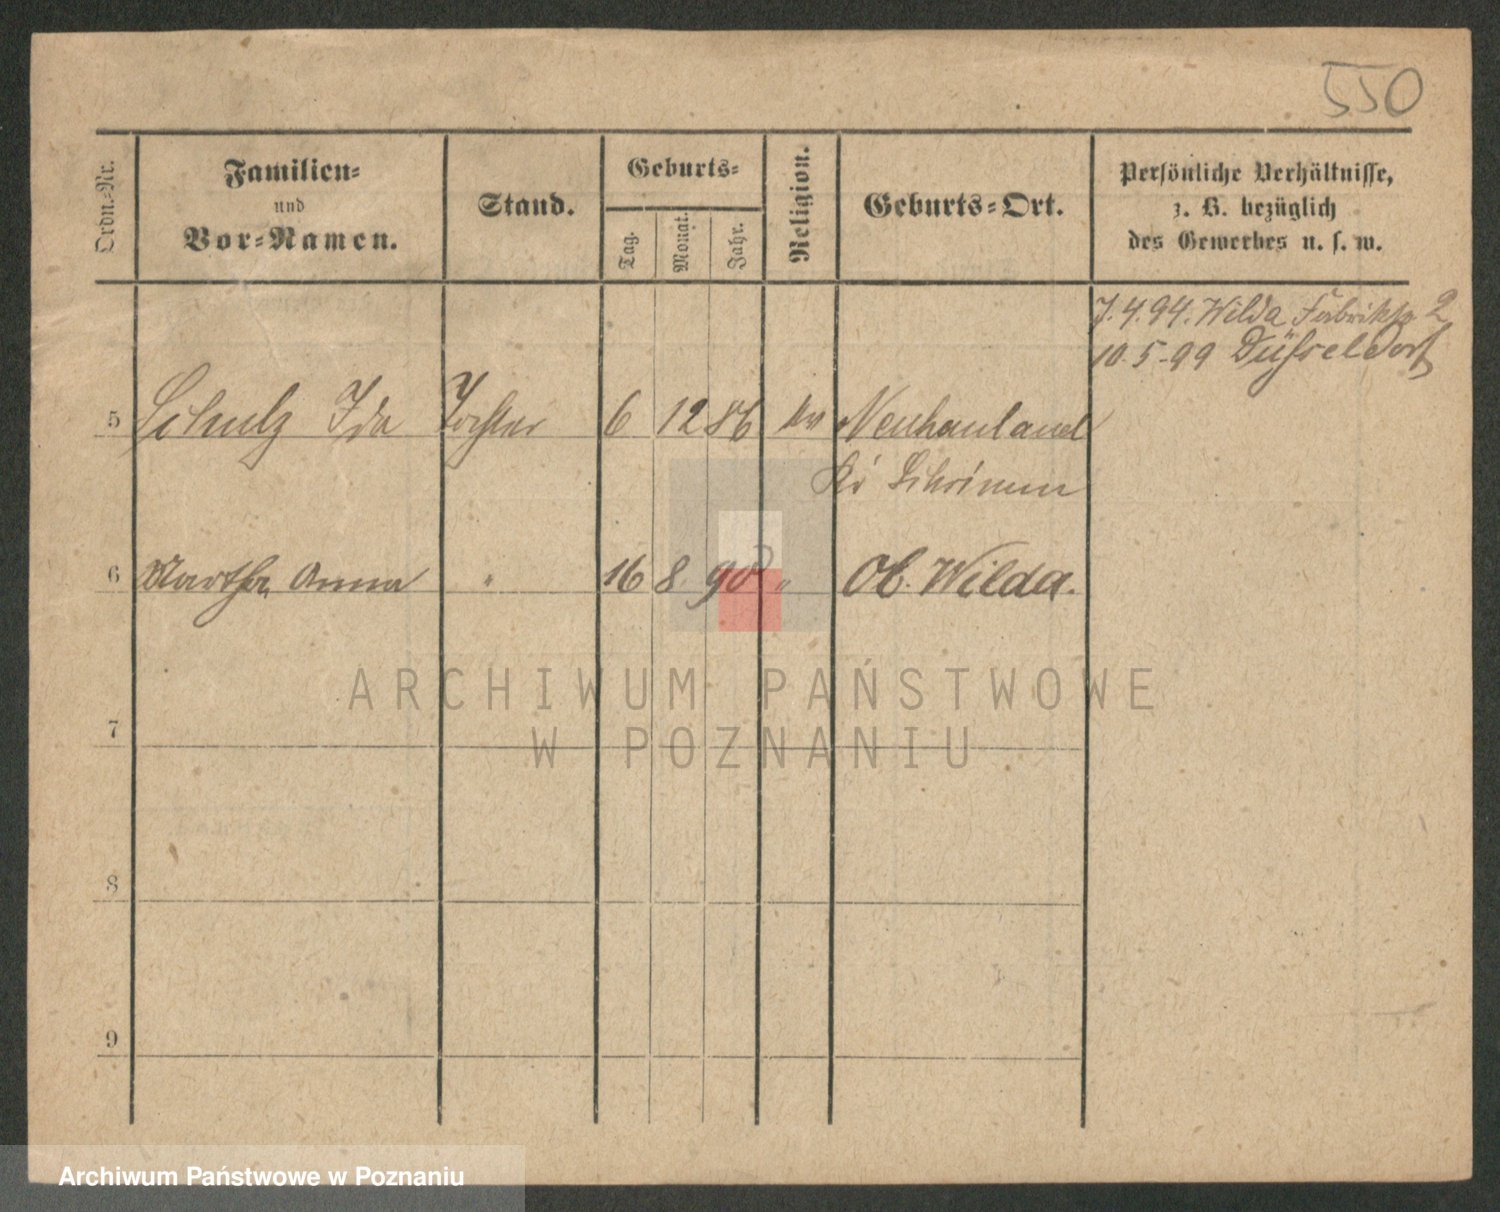 550
Ordn.-Nr.
Familien-
und
Vor-Namen.
Stand.
Geburts-
Tag.
Monat.
Jahr.
Religion.
Geburts-Ort.
Persönliche Verhältnisse,
z. B. bezüglich
des Gewerbes u. s. w.
7.4.94. Wilda Fabrikstr 2
10.5.99 Düsseldorf
5 Schulz Ida Tochter 6 12 86 Neuhauland
Kr Schrimm
6 Martha Anna " 16 8 90 " Ob. Wilda.
ARCHIWUM PAŃSTWOWE
W POZNANIU
7
8
9
Archiwum Państwowe w Poznaniu